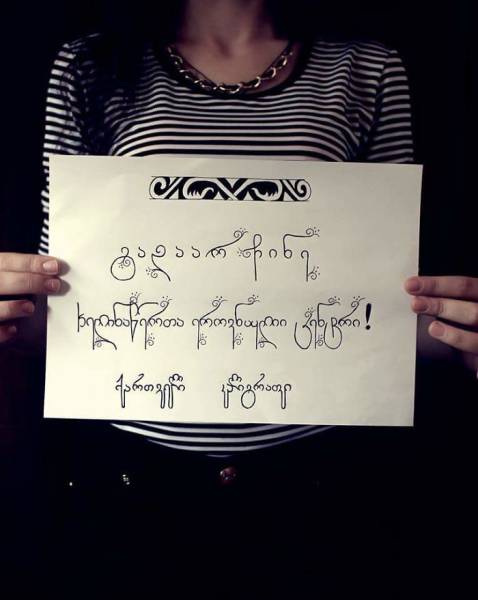 გადაარჩინე
ხელნაწერთა ეროვნული ცენტრი!
ქართული კალიგრაფი